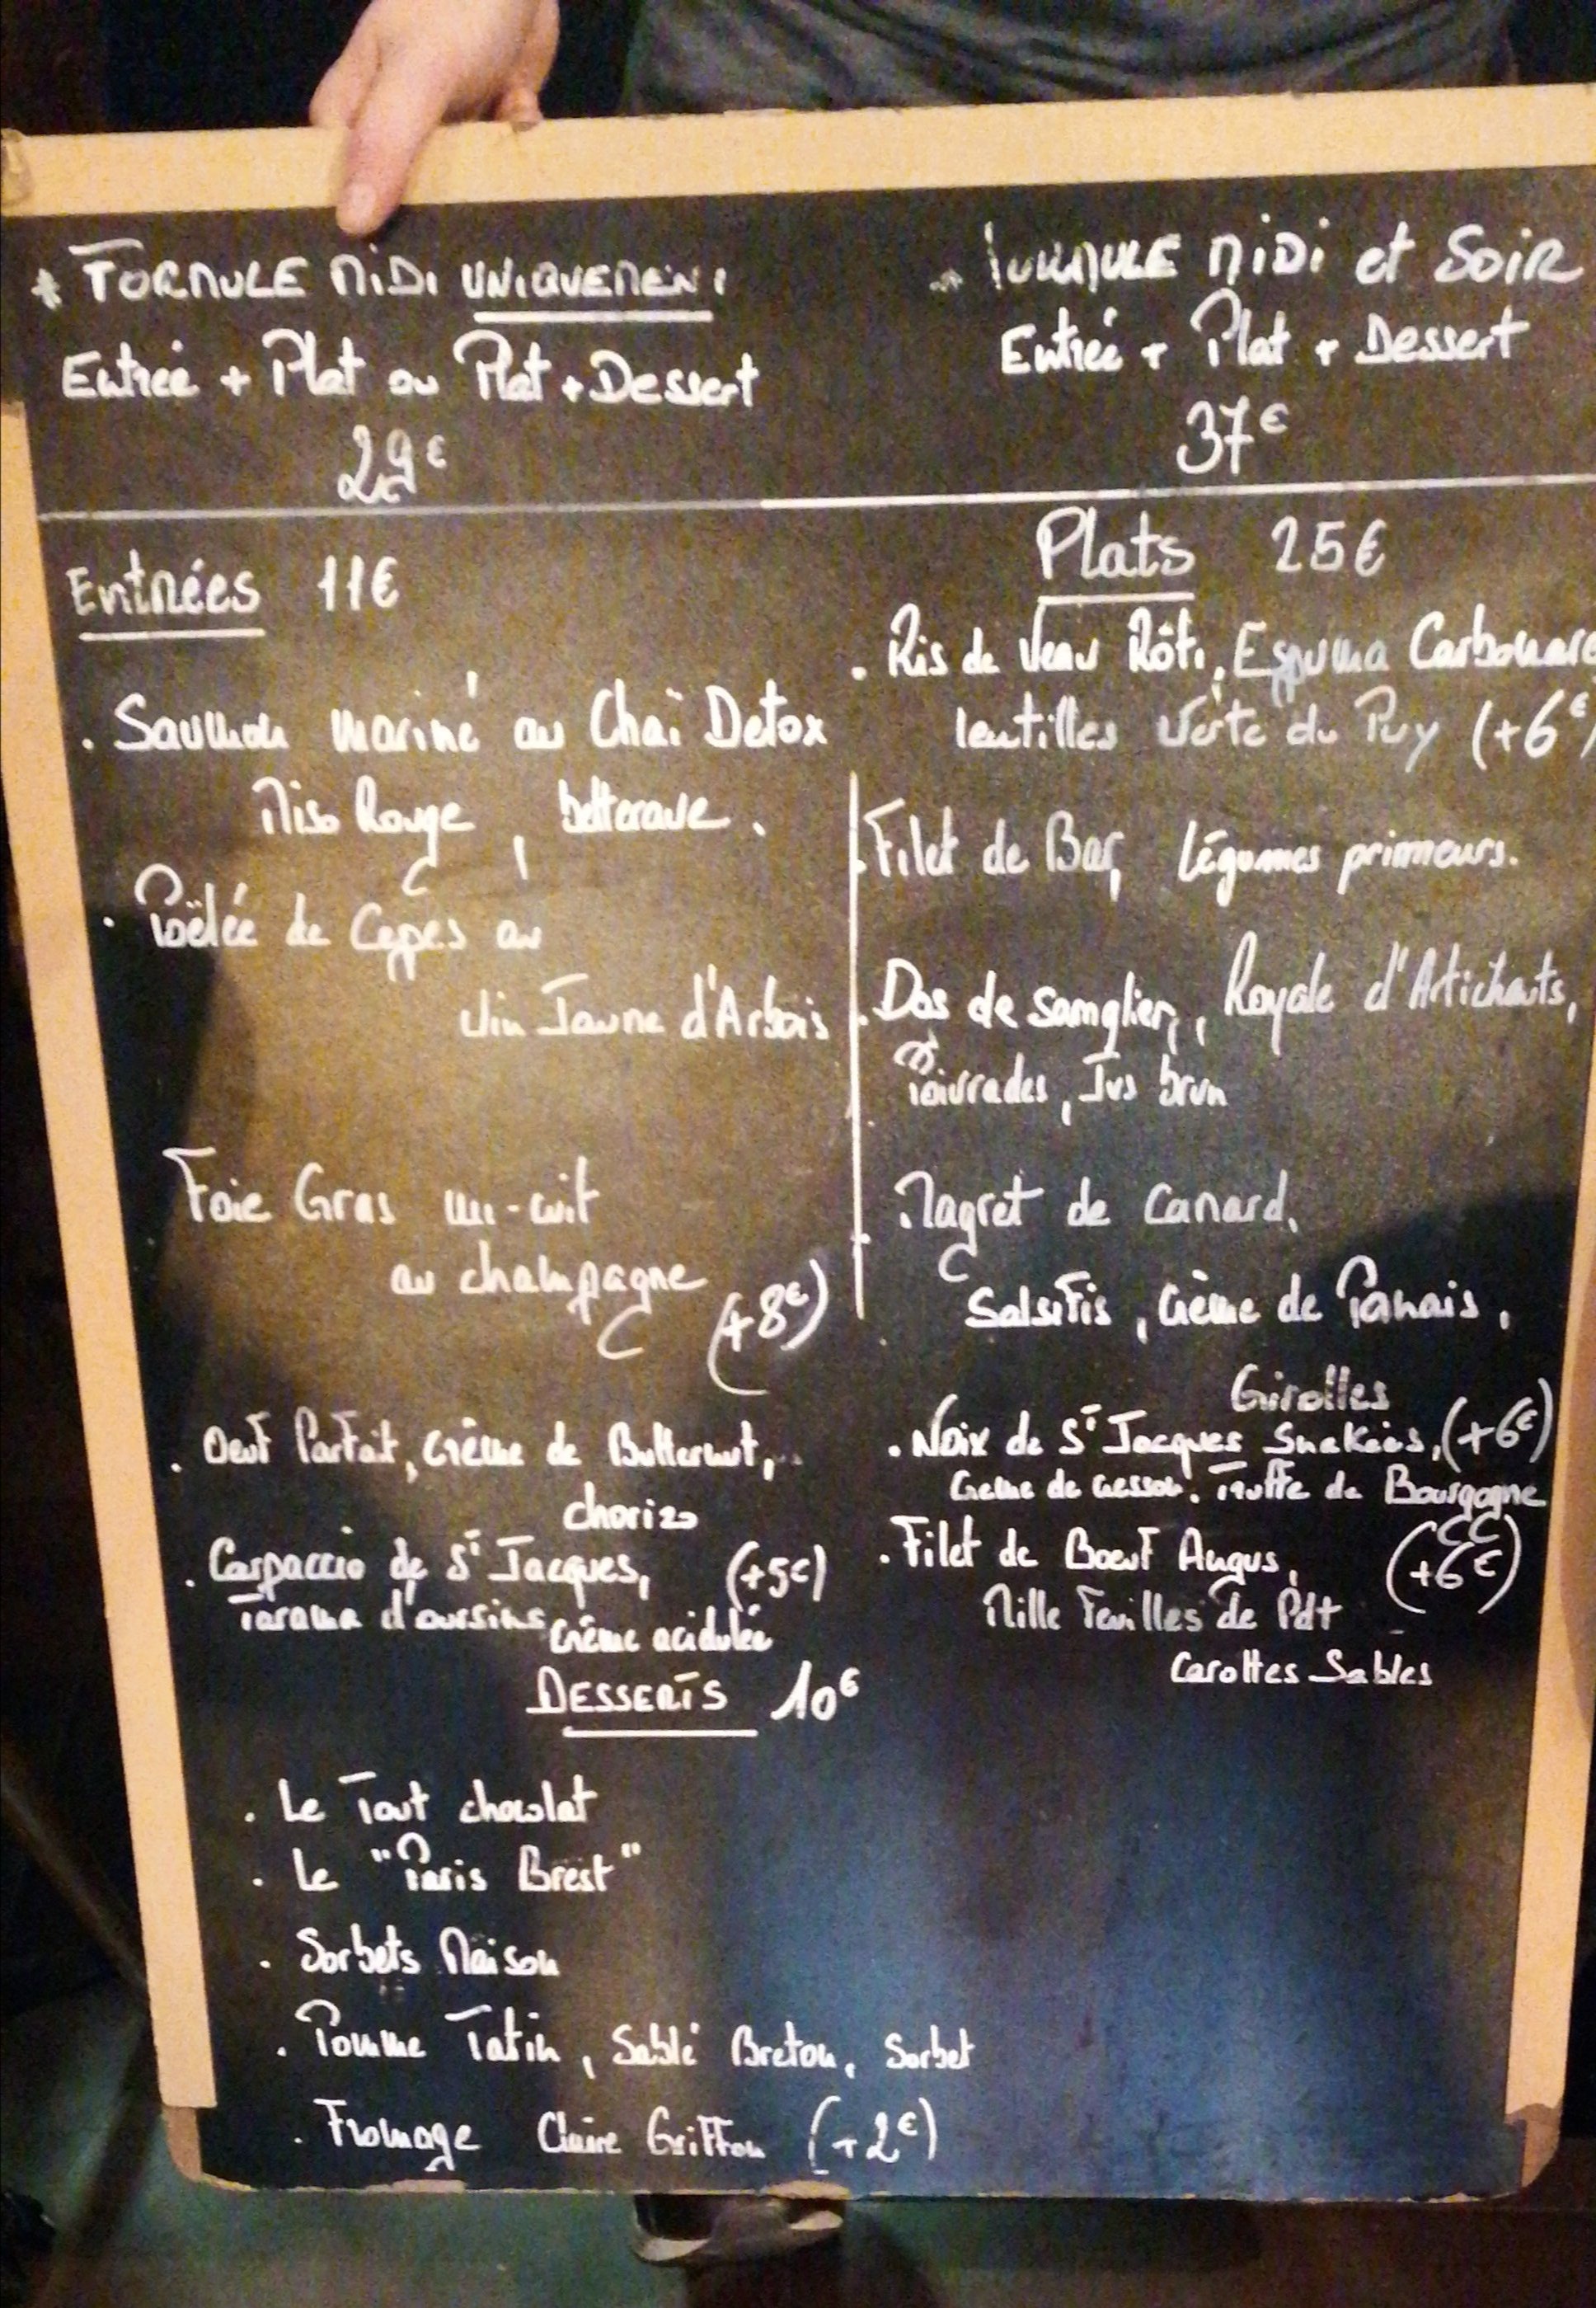 * FORMULE MIDI UNIQUEMENT
Entrée + Plat ou Plat + Dessert
29€
FORMULE MIDI et SOIR
Entrée + Plat + Dessert
37€
Entrées 11€
. Saumon mariné au Chaï Detox
Miso Rouge, betterave.
. Poëlée de Cèpes au
Vin Jaune d'Arbois
Foie Gras mi-cuit
au champagne
(+8€)
. Oeuf Parfait, crème de Butternut,
chorizo
. Carpaccio de St Jacques, (+5€)
Tarama d'oursins
crème acidulée
Plats 25€
. Ris de Veau Rôti, Espuma
lentilles verte du Puy (+6€)
. Filet de Bar, légumes primeurs.
. Dos de sanglier, Royale d'Artichauts,
Poivrades, Jus brun
. Magret de canard,
Salsifis, crème de Panais,
Girolles
. Noix de St Jacques Snakées, (+6€)
Crème de cresson. Truffe de Bourgogne
. Filet de Boeuf Angus, (+6€)
Mille Feuilles de Pdt
Carottes Sables
DESSERTS 10€
. Le Tout chocolat
. Le "Paris Brest"
. Sorbets Maison
. Pomme Tatin, Sablé Breton, Sorbet
. Fromage Claire Griffon (+2€)